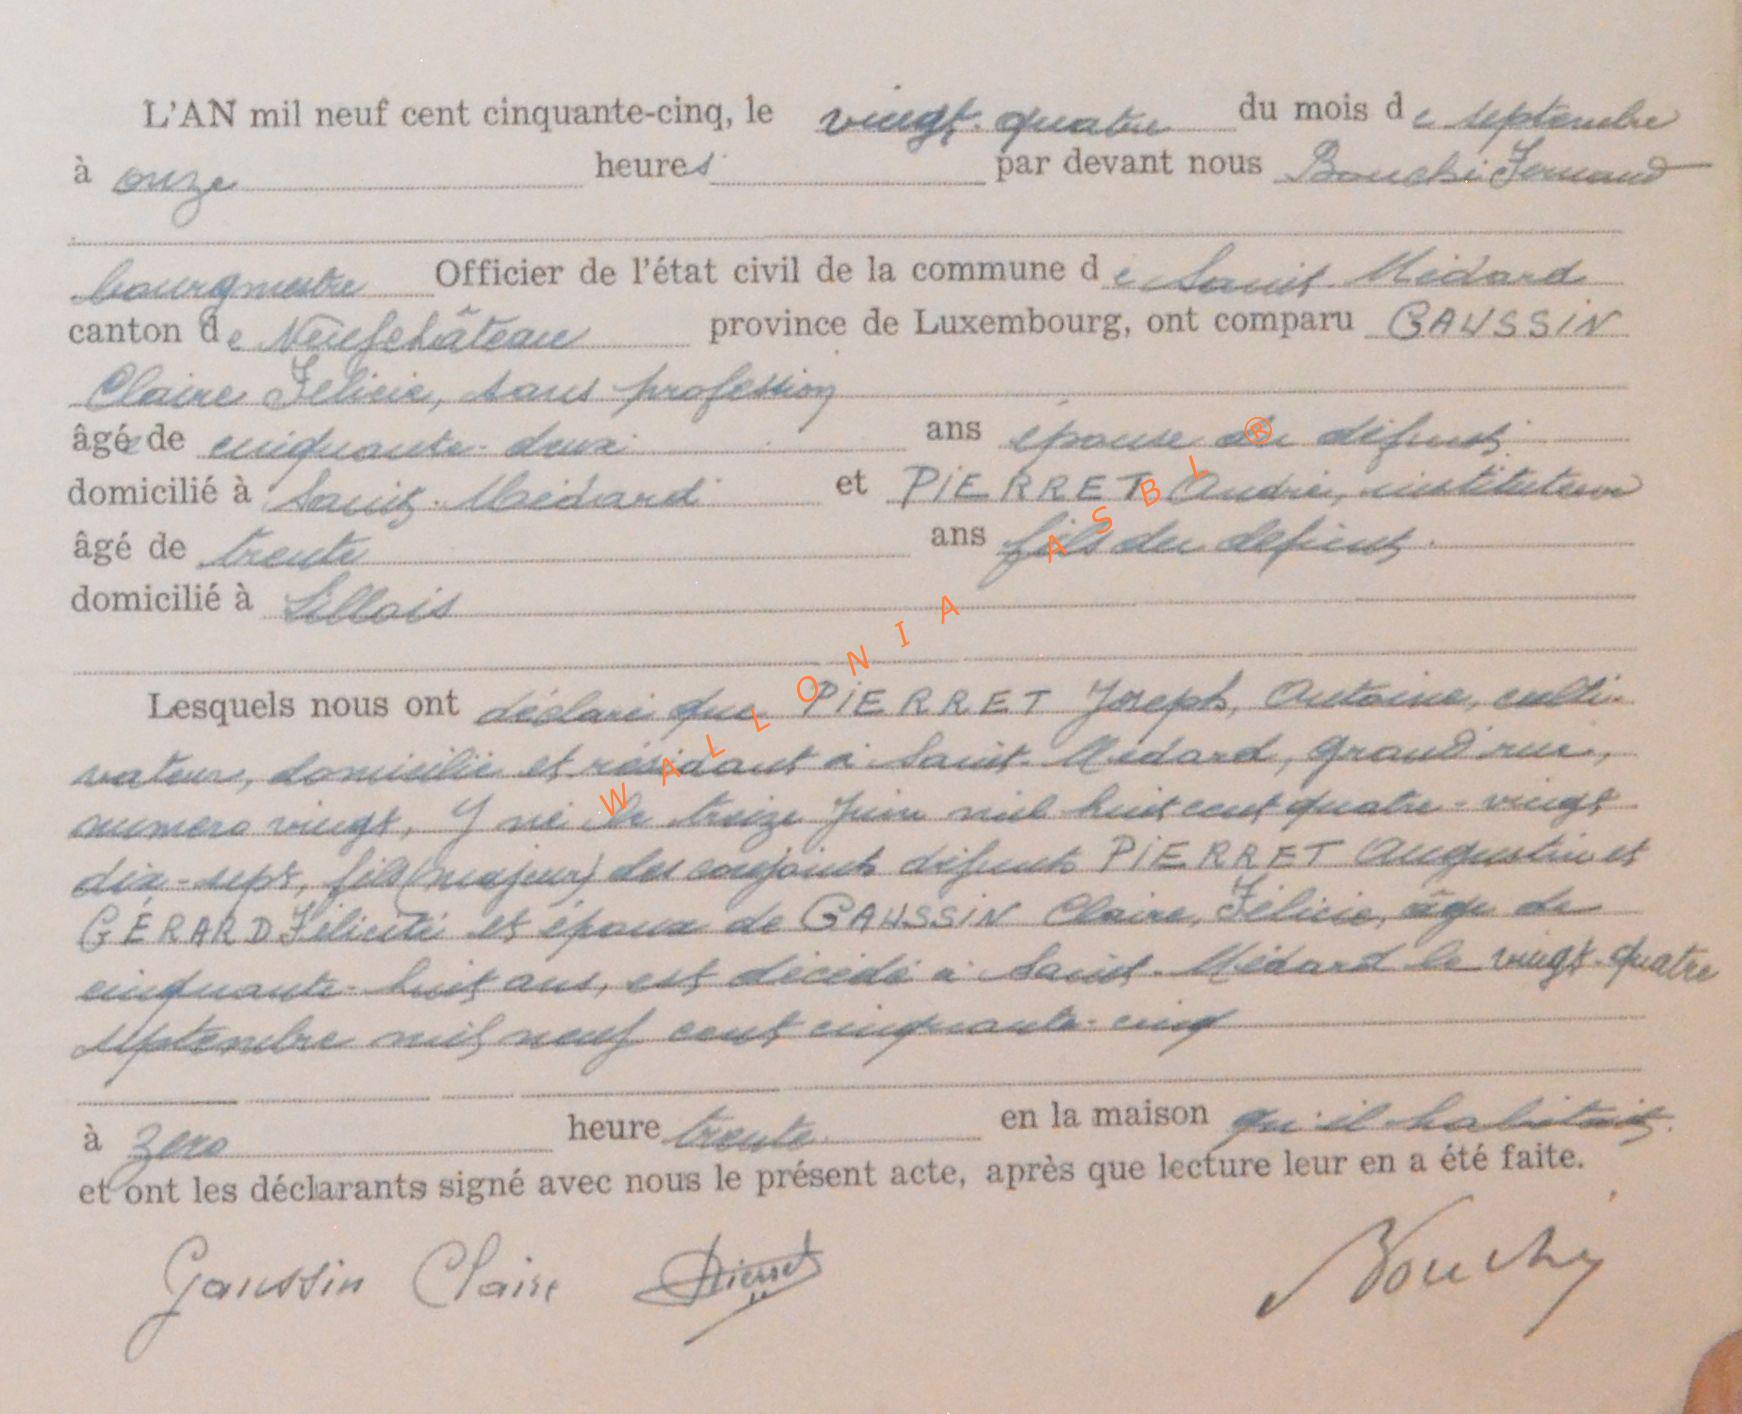 L'AN mil neuf cent cinquante-cinq, le vingt-quatre du mois de septembre
à onze heures par devant nous Bouché Fernand
bourgmestre Officier de l'état civil de la commune de Saint-Médard
canton de Neufchâteau province de Luxembourg, ont comparu GAUSSIN
Claire Félicie, sans profession
âgée de cinquante-deux ans épouse du défunt.
domicilié à Saint-Médard et PIERRET André, instituteur
âgé de trente ans fils du défunt.
domicilié à Lillois
Lesquels nous ont déclaré que PIERRET Joseph, Antoine, culti-
vateur, domicilié et résidant à Saint-Médard, grand'rue,
numéro vingt, y né le treize juin mil huit cent quatre-vingt
dix-sept, fils (majeur) des conjoints défunts PIERRET Augustin et
GÉRARD Félicité et époux de GAUSSIN Claire, Félicie, âgé de
cinquante-huit ans, est décédé à Saint-Médard le vingt-quatre
septembre mil neuf cent cinquante-cinq
à zéro heure trente en la maison qu'il habitait.
et ont les déclarants signé avec nous le présent acte, après que lecture leur en a été faite.
Gaussin Claire Pierret Bouché
WALLONIA ASBL ®